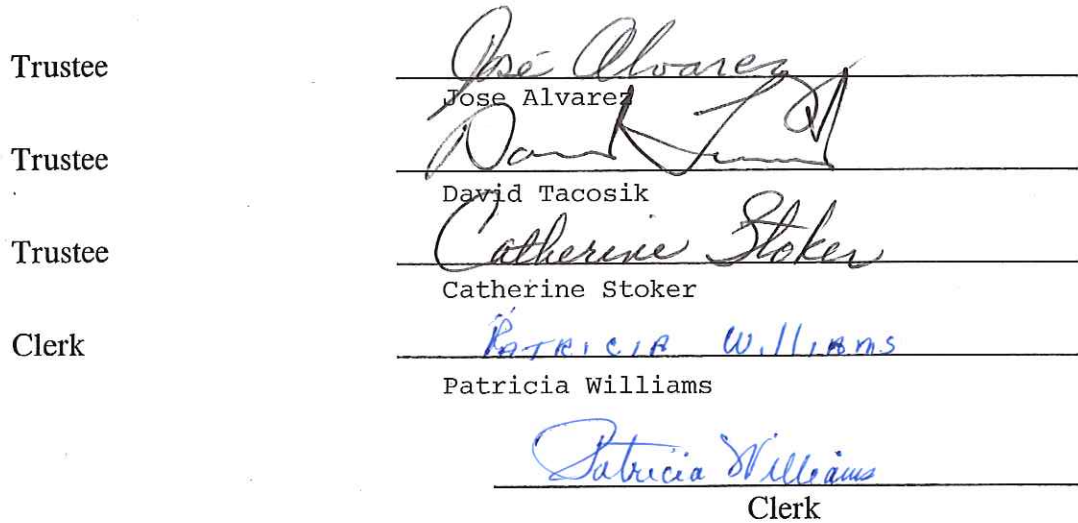 Trustee José Alvarez
Jose Alvarez
Trustee David
David Tacosik
Trustee Catherine Stoker
Catherine Stoker
Clerk Patricia Williams
Patricia Williams
Patricia Williams
Clerk